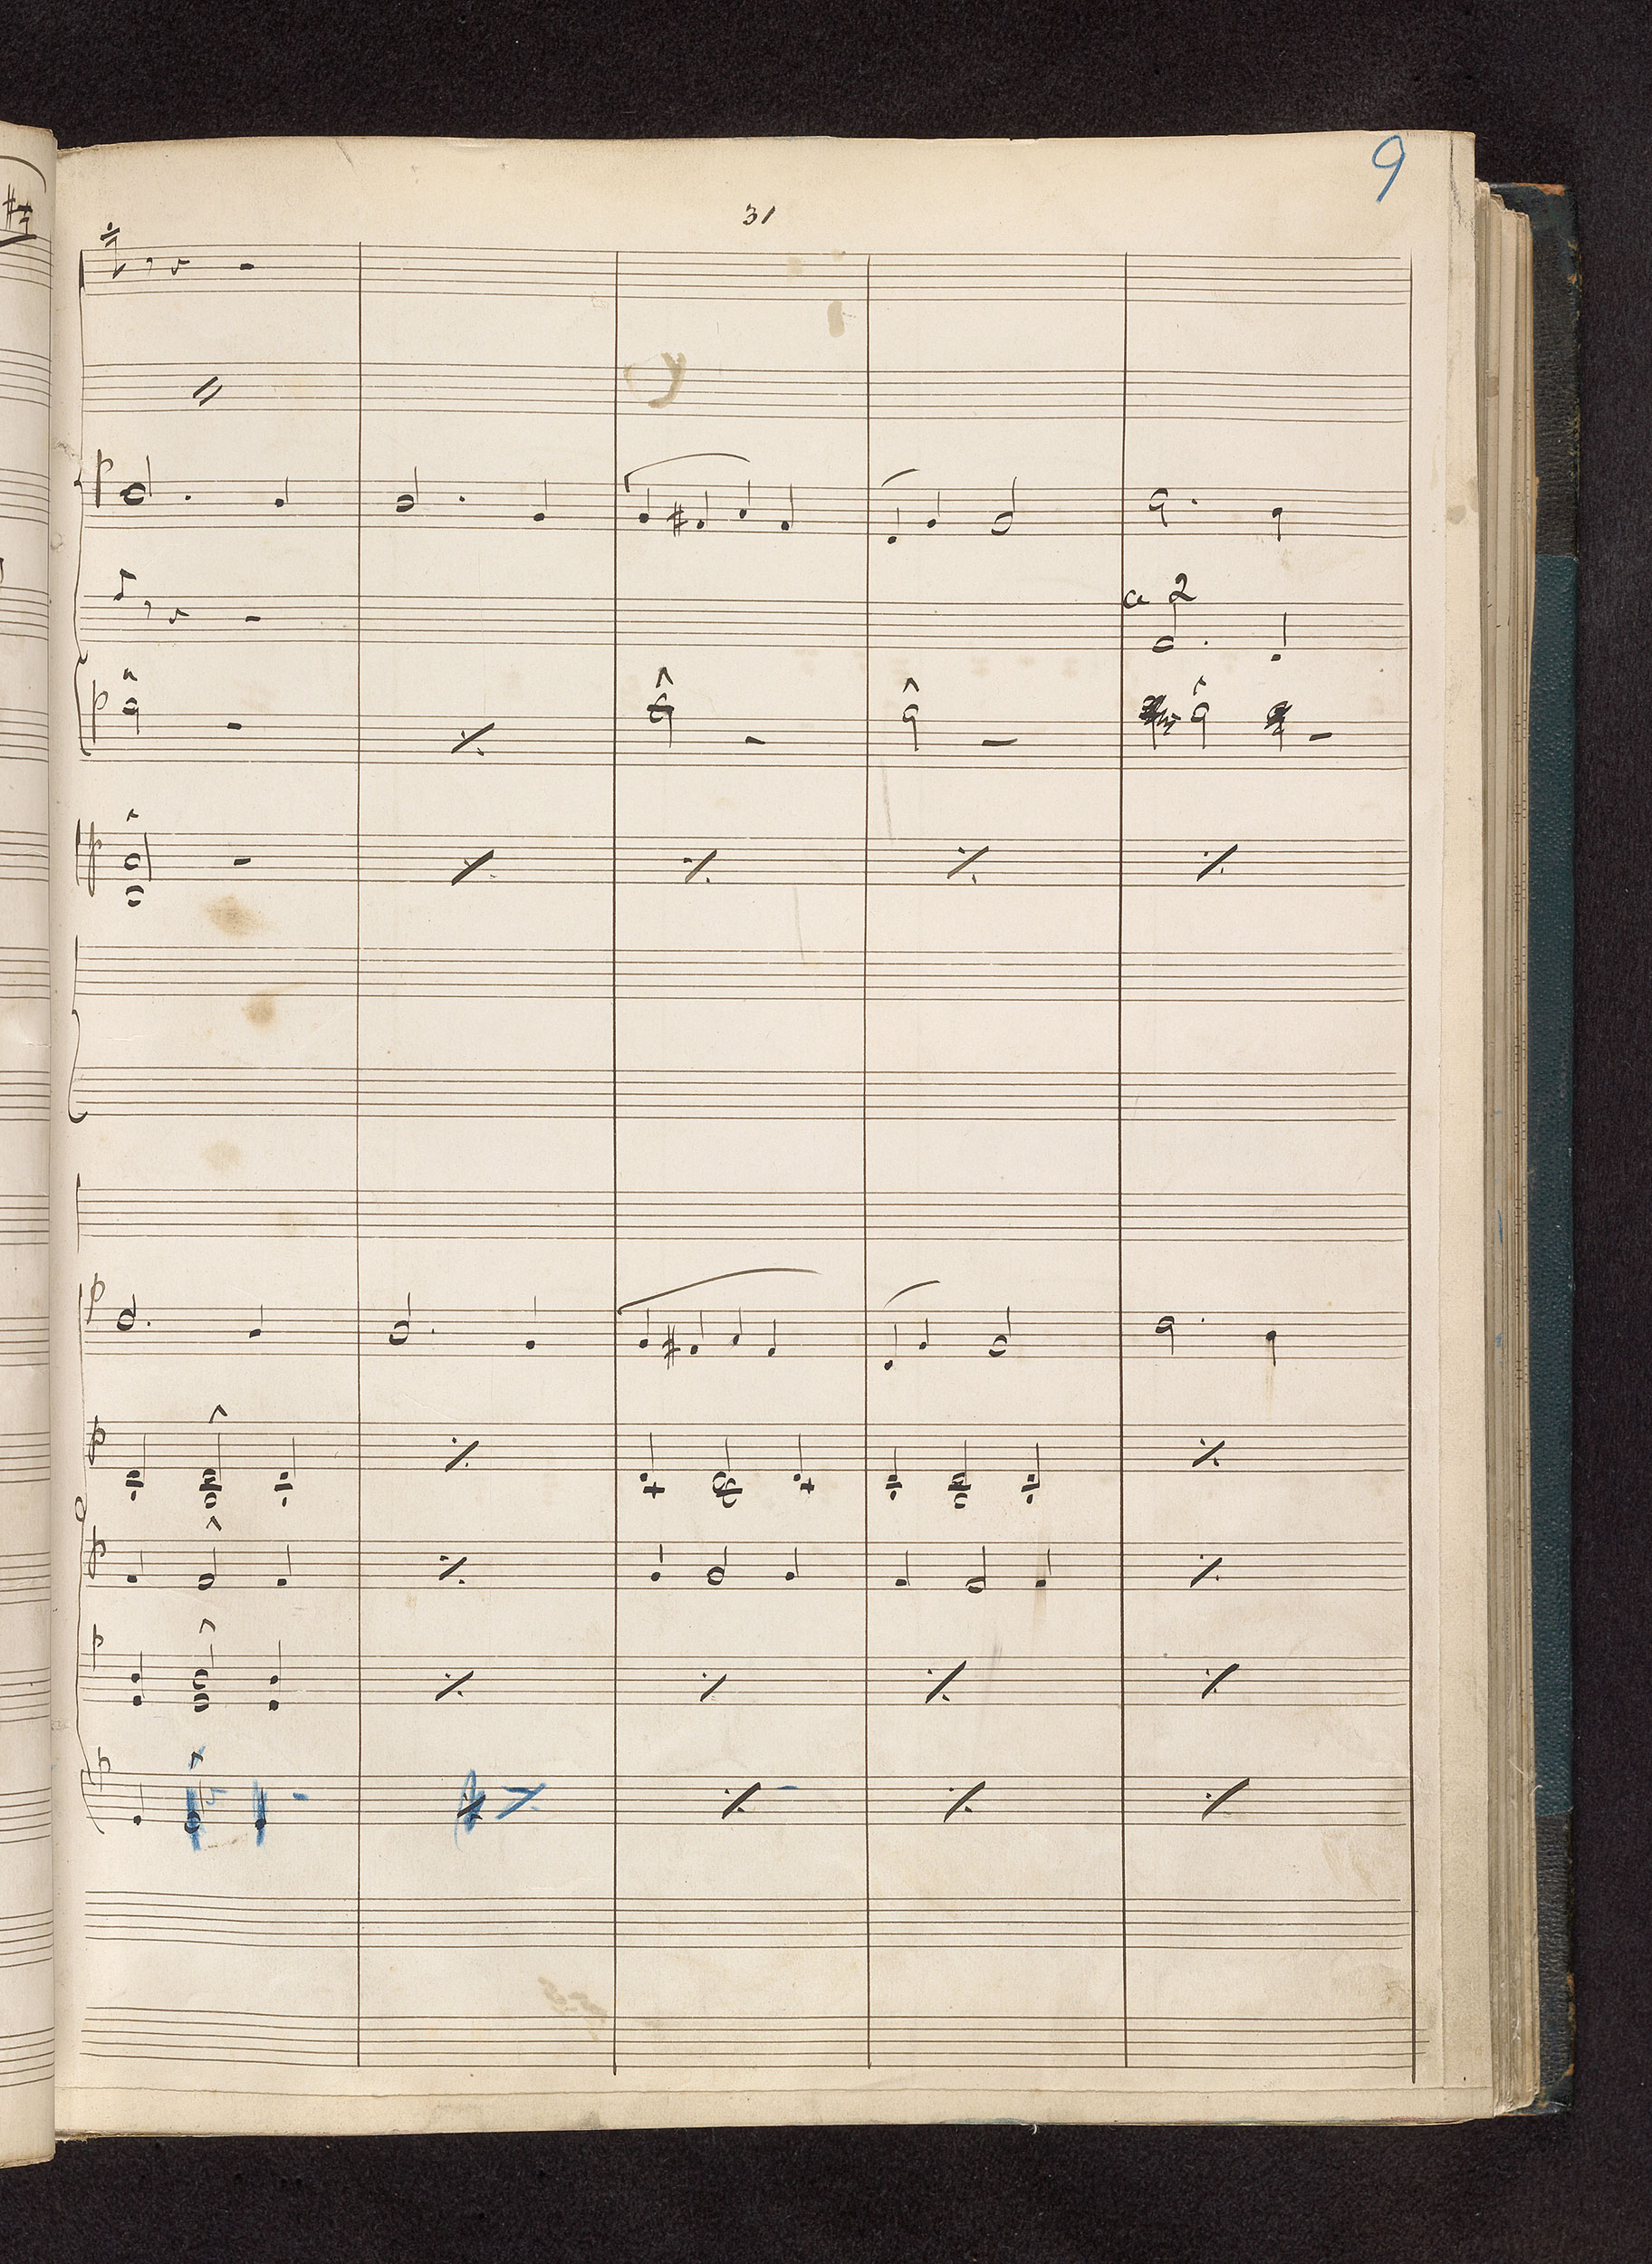 9
31
p
p
a 2
p
p
p
p
p
p